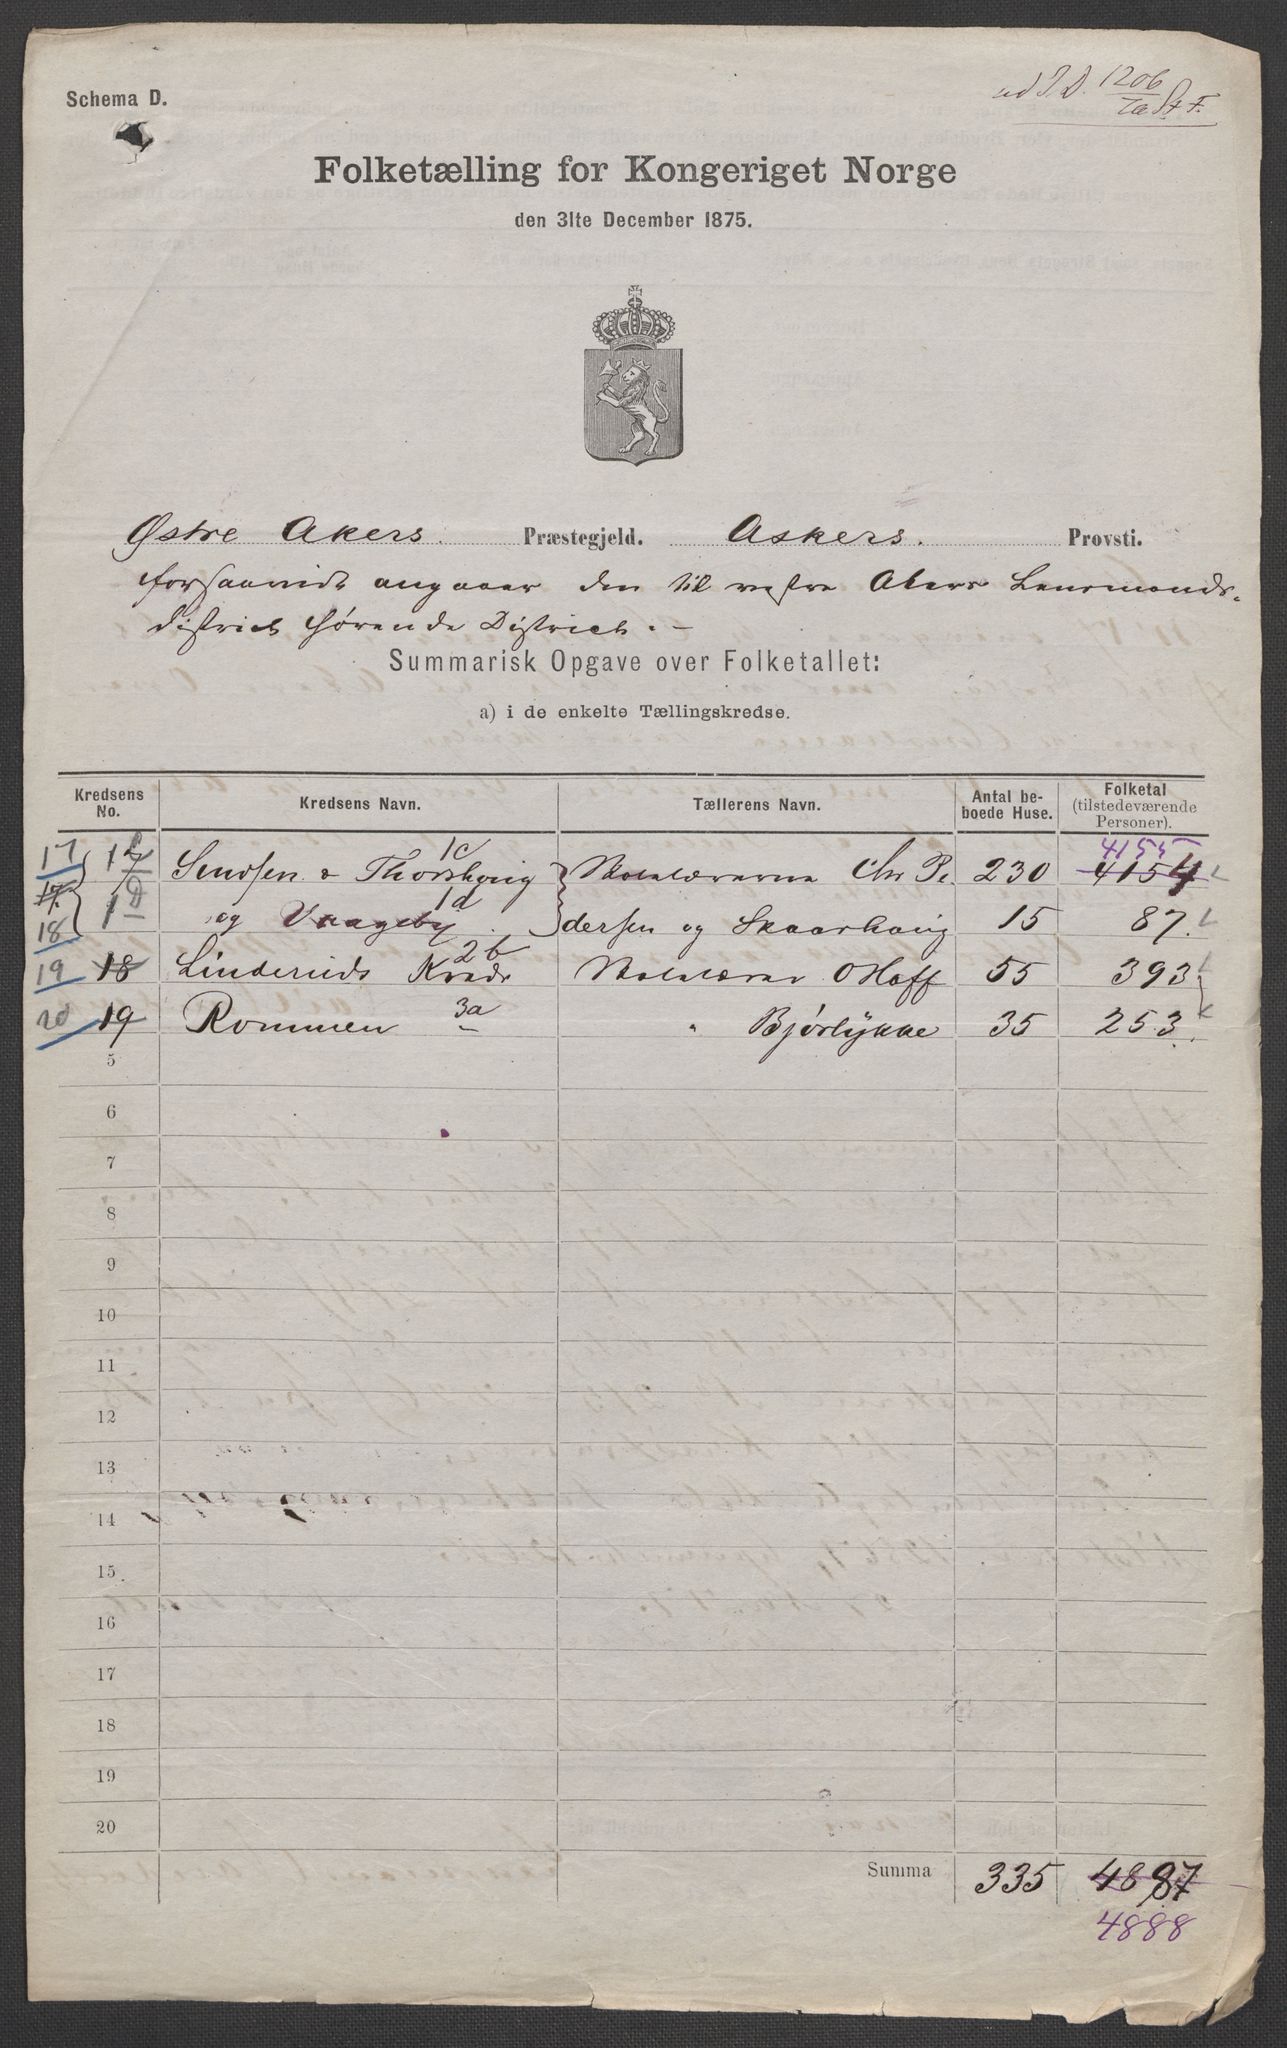 Schema D.
ad J. D. 1206
Folketælling for Kongeriget Norge
den 31te December 1875.
Østre Akers. Præstegjeld. Askers. Provsti.
forsaavidt angaaer den til vestre Akers Lensmands-
district hørende District. -
Summarisk Opgave over Folketallet:
a) i de enkelte Tællingskredse.
Kredsens No. Kredsens Navn. Tællerens Navn. Antal beboede Huse. Folketal (tilstedeværende Personer).
4155
17 Sinsen & Thorshoug 1c Skolelærerne Chr Pe- 230 4154
18 1D og Vaageby. 1d dersen og Skaarhaug 15 87.
19 18 Linderuds Kreds 2b Skolelærer O Hoff 55 393
20 19 Rommen 3a " Bjørlykke 35 253.
5
6
7
8
9
10
11
12
13
14
15
16
17
18
19
20
Summa 335 4887
4888